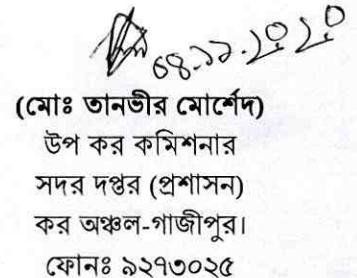 ০৪.১১.২০২০
(মোঃ তানভীর মোর্শেদ)
উপ কর কমিশনার
সদর দপ্তর (প্রশাসন)
কর অঞ্চল-গাজীপুর।
ফোনঃ ৯২৭৩০২৫